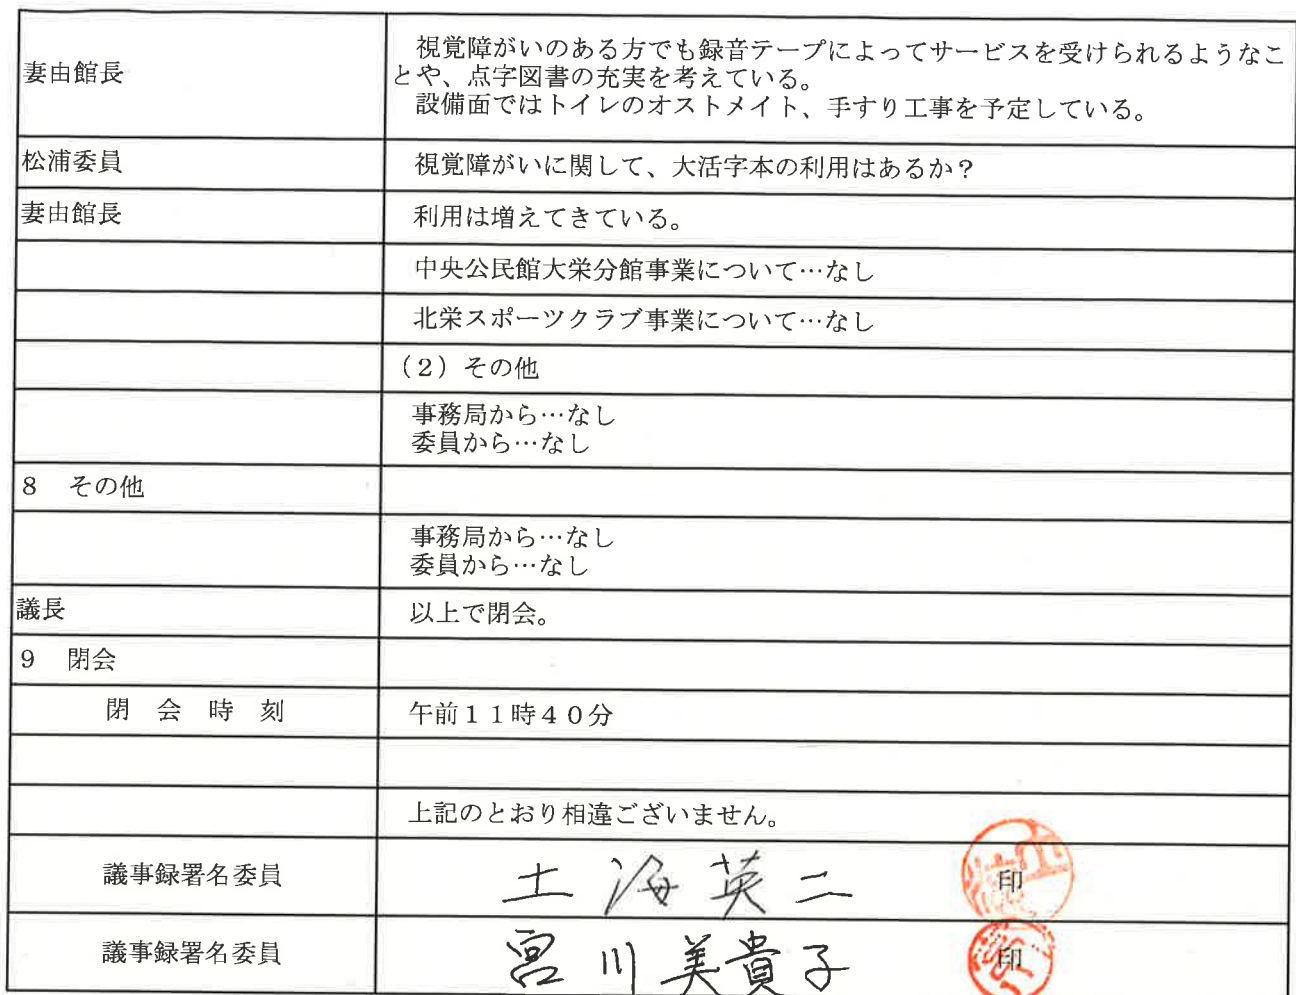 妻由館長
視覚障がいのある方でも録音テープによってサービスを受けられるようなこ
とや、点字図書の充実を考えている。
設備面ではトイレのオストメイト、手すり工事を予定している。
松浦委員
視覚障がいに関して、大活字本の利用はあるか？
妻由館長
利用は増えてきている。
中央公民館大栄分館事業について…なし
北栄スポーツクラブ事業について…なし
（２）その他
事務局から…なし
委員から…なし
８　その他
事務局から…なし
委員から…なし
議長
以上で閉会。
９　閉会
閉　会　時　刻
午前１１時４０分
上記のとおり相違ございません。
議事録署名委員
土海英二
印
議事録署名委員
宮川美貴子
印